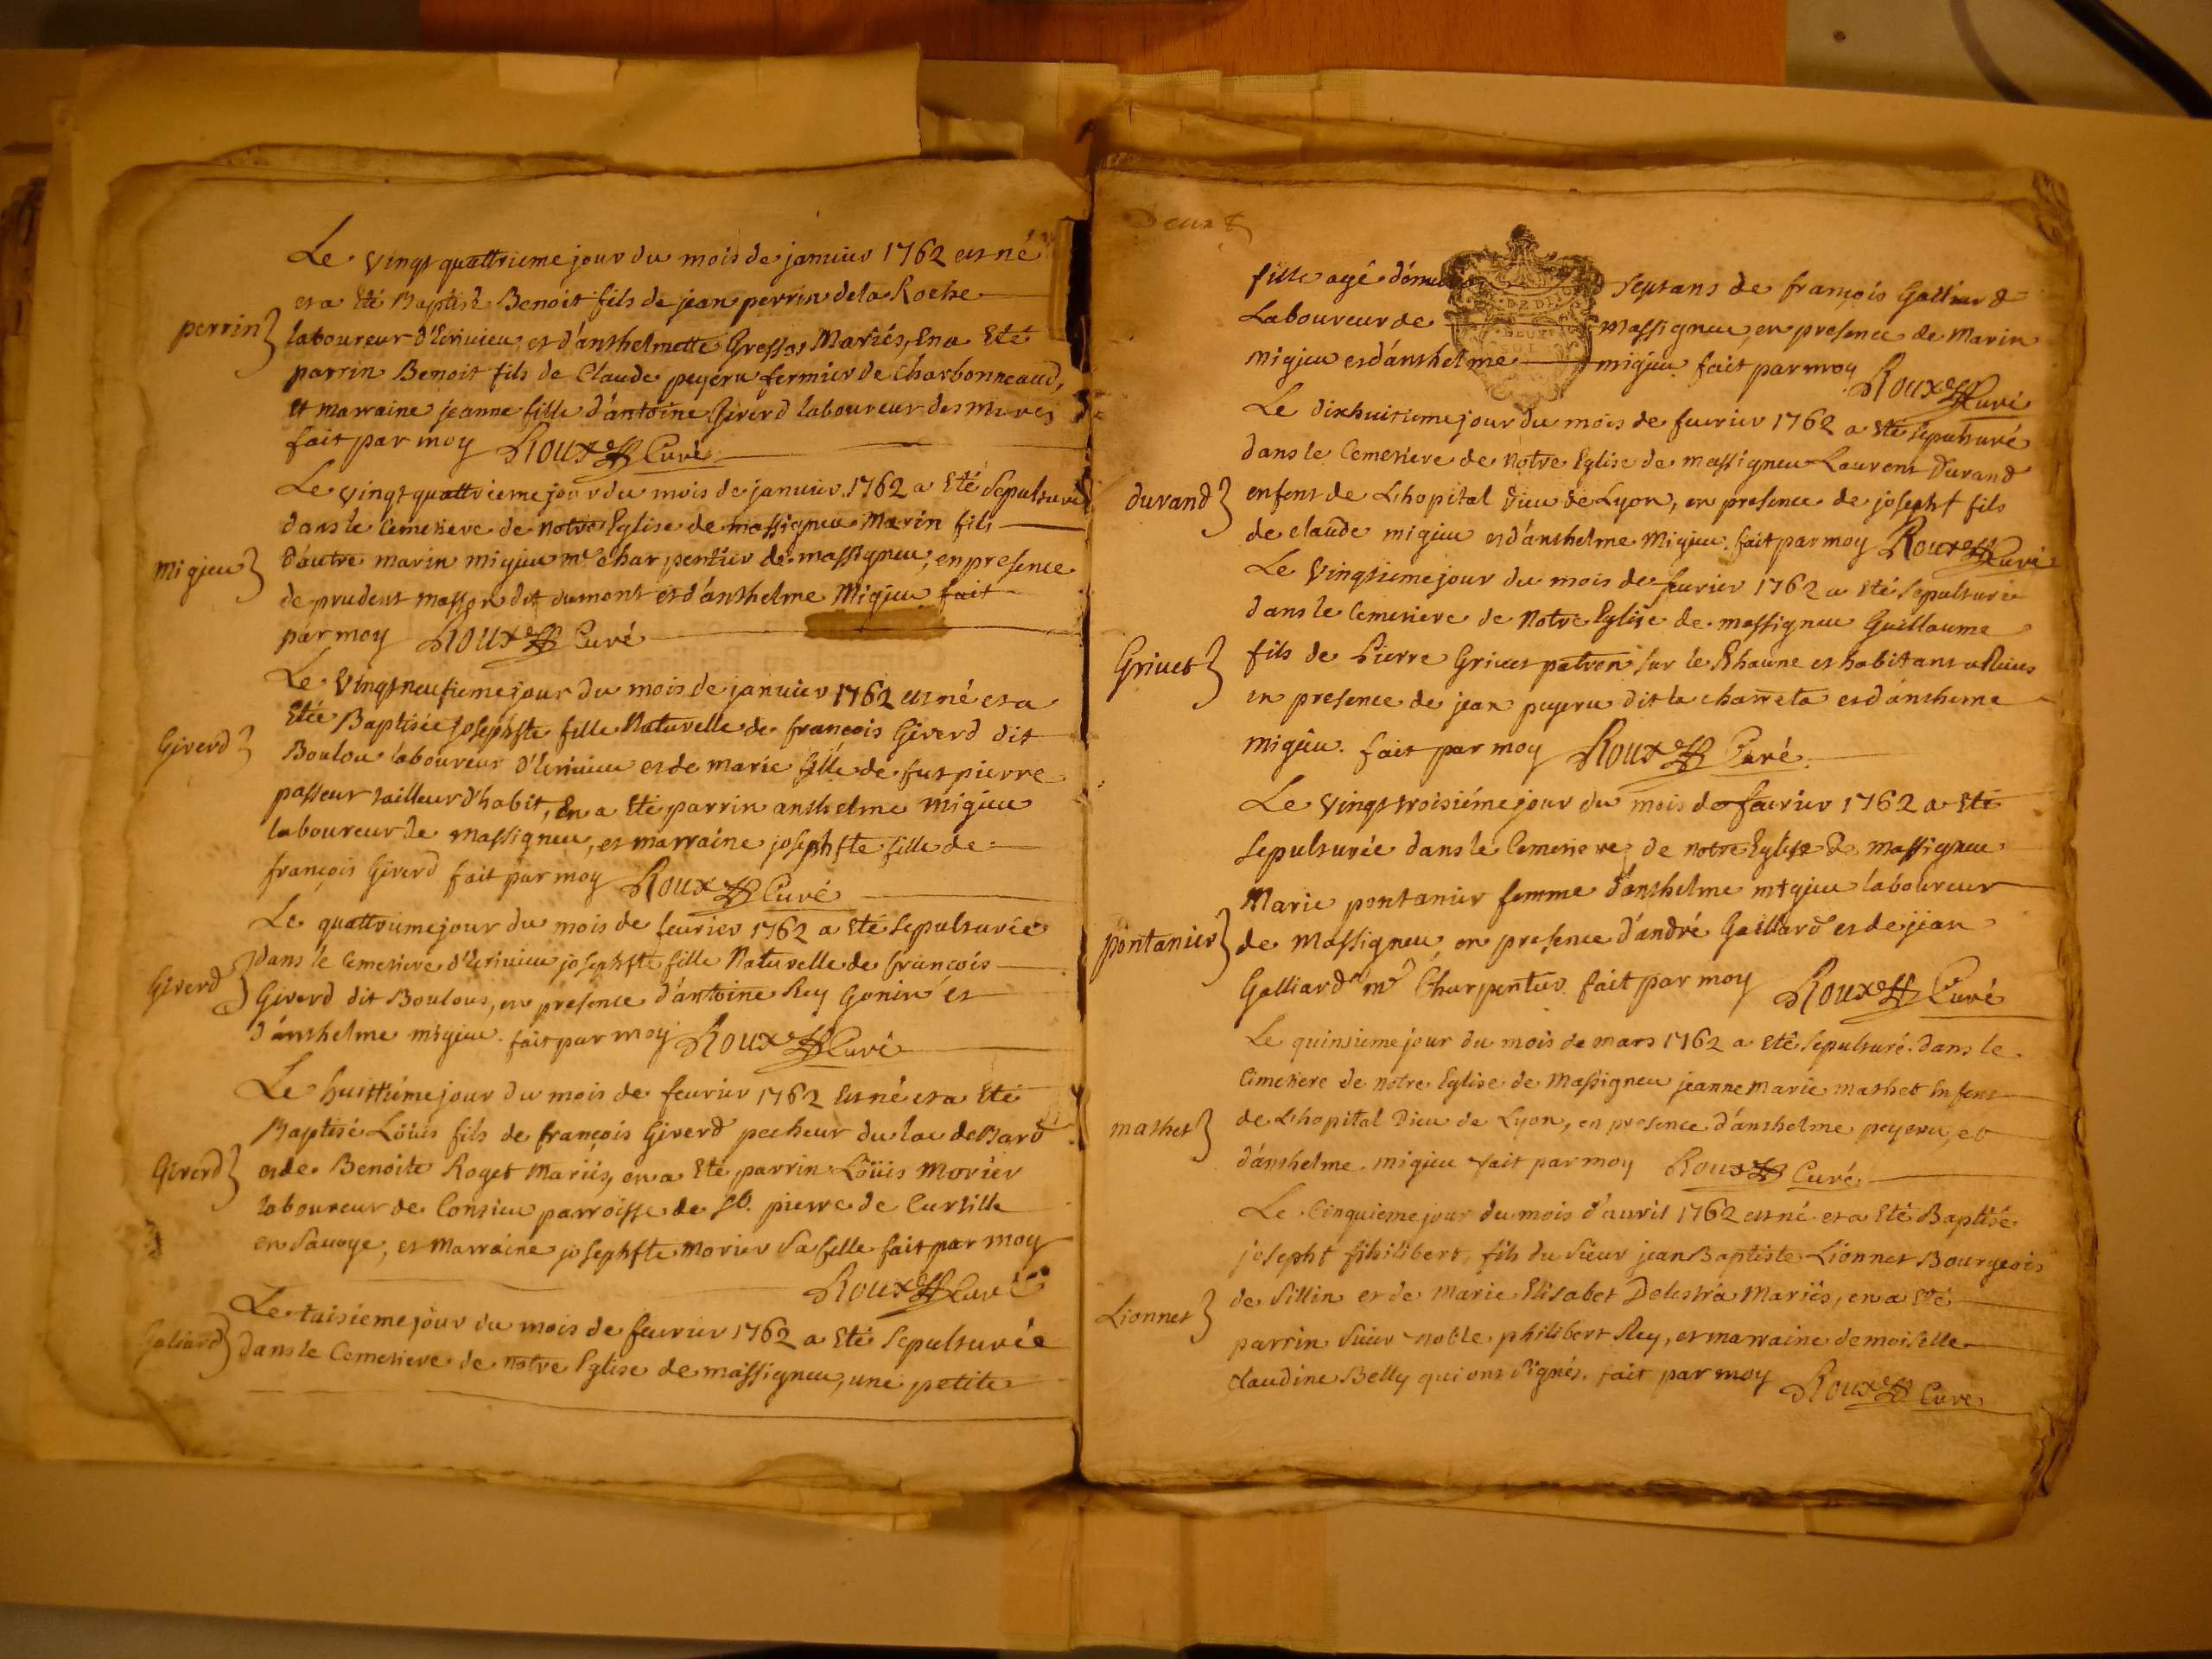 Le vingt quattrieme jour du mois de janvier 1762 est né
et a Eté Baptisé Benoit fils de jean perrin de la Roche
perrin} laboureur d'Ecrivieu et d'anthelmette Gressot Mariés, En a Eté
parrin Benoit fils de Claude peyeru fermier de Charbonneaud,
et marraine jeanne fille d'antoine Girerd laboureur des mures
fait par moy Roux Curé
Le vingt quattrieme jour du mois de janvier 1762 a Eté Sepulturé
dans le Cemetiere de notre Eglise de massigneu Marin fils
migieu} d'autre marin migieu me charpentier de massigneu, en presence
de prudent masson dit dumont et d'anthelme Migieu fait
par moy Roux Curé
Le Vingt neufieme jour du mois de janvier 1762 est né et a
Etée Baptisée josephte fille Naturelle de françois Girerd dit
Girerd} Boulou laboureur d'Ecrivieu et de marie fille de fut pierre
passeur tailleur d'habit, En a Eté parrin anthelme migieu
laboureur de massigneu, et marraine josephte fille de
françois Girerd fait par moy Roux Curé
Le quattrieme jour du mois de fevrier 1762 a Eté Sepulturée
dans le Cemetiere d'Ecrivieu josephte fille Naturelle de françois
Girerd} Girerd dit Boulou, en presence d'antoine Rey Gonin et
d'anthelme migieu. fait par moy Roux Curé
Le huittiéme jour du mois de fevrier 1762 Est né et a Eté
Baptisé Loüis fils de françois Girerd pecheur du lac de Bard
Girerd} et de Benoite Roget Mariés, en a Eté parrin Loüis Morier
laboureur de Consieu parroisse de St. pierre de Curtille
en Savoye, et Marraine josephte Morier Sa fille fait par moy
Roux Curé
Le treisieme jour du mois de fevrier 1762 a Eté Sepulturée
Galiard} dans le Cemetiere de notre Eglise de massigneu, une petite
fille agé d'environ Sept ans de françois Galliard
Laboureur de Massigneu, en presence de Marin
migieu et d'anthelme migieu fait par moy
Roux Curé
Le dixhuitieme jour du mois de fevrier 1762 a Eté Sepulturé
dans le Cemetiere de Notre Eglise de massigneu Laurent Durand
durand} enfent de L'hopital Dieu de Lyon, en presence de josepht fils
de claude migieu et d'anthelme Migieu. fait par moy Roux Curé
Le Vingtieme jour du mois de fevrier 1762 a Eté Sepulturé
dans le Cemetiere de Notre Eglise de massigneu Guillaume
Grivet} fils de Pierre Grivet patron Sur le Rhaune et habitant
en presence de jean peyeru dit la charreta et d'anthelme
migieu. fait par moy Roux Curé.
Le Vingt troisiéme jour du mois de fevrier 1762 a Eté
Sepulturée dans le Cemetiere de notre Eglise de massigneu
Marie pontanier femme d'anthelme migieu laboureur
pontanier} de Massigneu en presence d'andré Galliard et de jean
Galliard me Charpentier. fait par moy Roux Curé
Le quinsieme jour du mois de mars 1762 a Eté Sepulturé dans le
Cimetiere de notre Eglise de Massigneu jeanne marie mathet Enfent
mathet} de L'hopital Dieu de Lyon, en presence d'anthelme peyeru, et
d'anthelme migieu fait par moy Roux Curé
Le Cinquieme jour du mois d'avril 1762 est né et a Eté Baptisé
josepht philibert, fils du Sieur jean Baptiste Lionnet Bourgeois
Lionnet} de Sillin et de Marie Elisabet Delestra Mariés, en a Eté
parrin Sieur noble philibert Rey, et marraine demoiselle
claudine Belly qui ont Signés. fait par moy Roux Curé